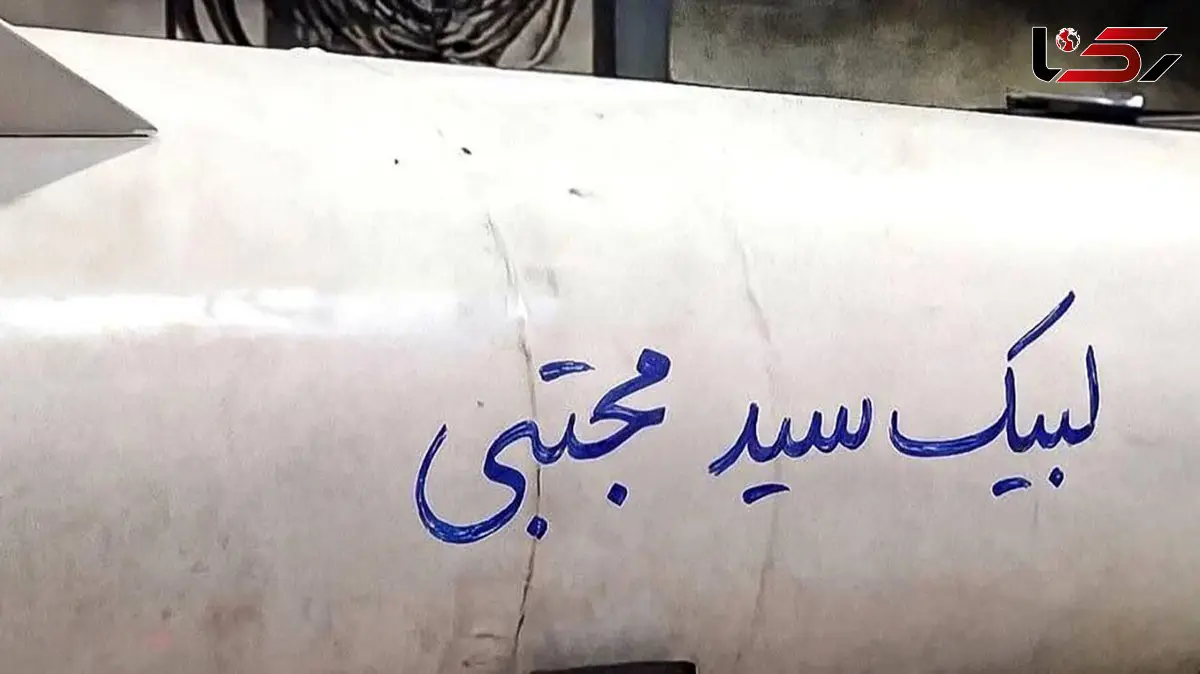 رکنا
لبیک سید مجتبی